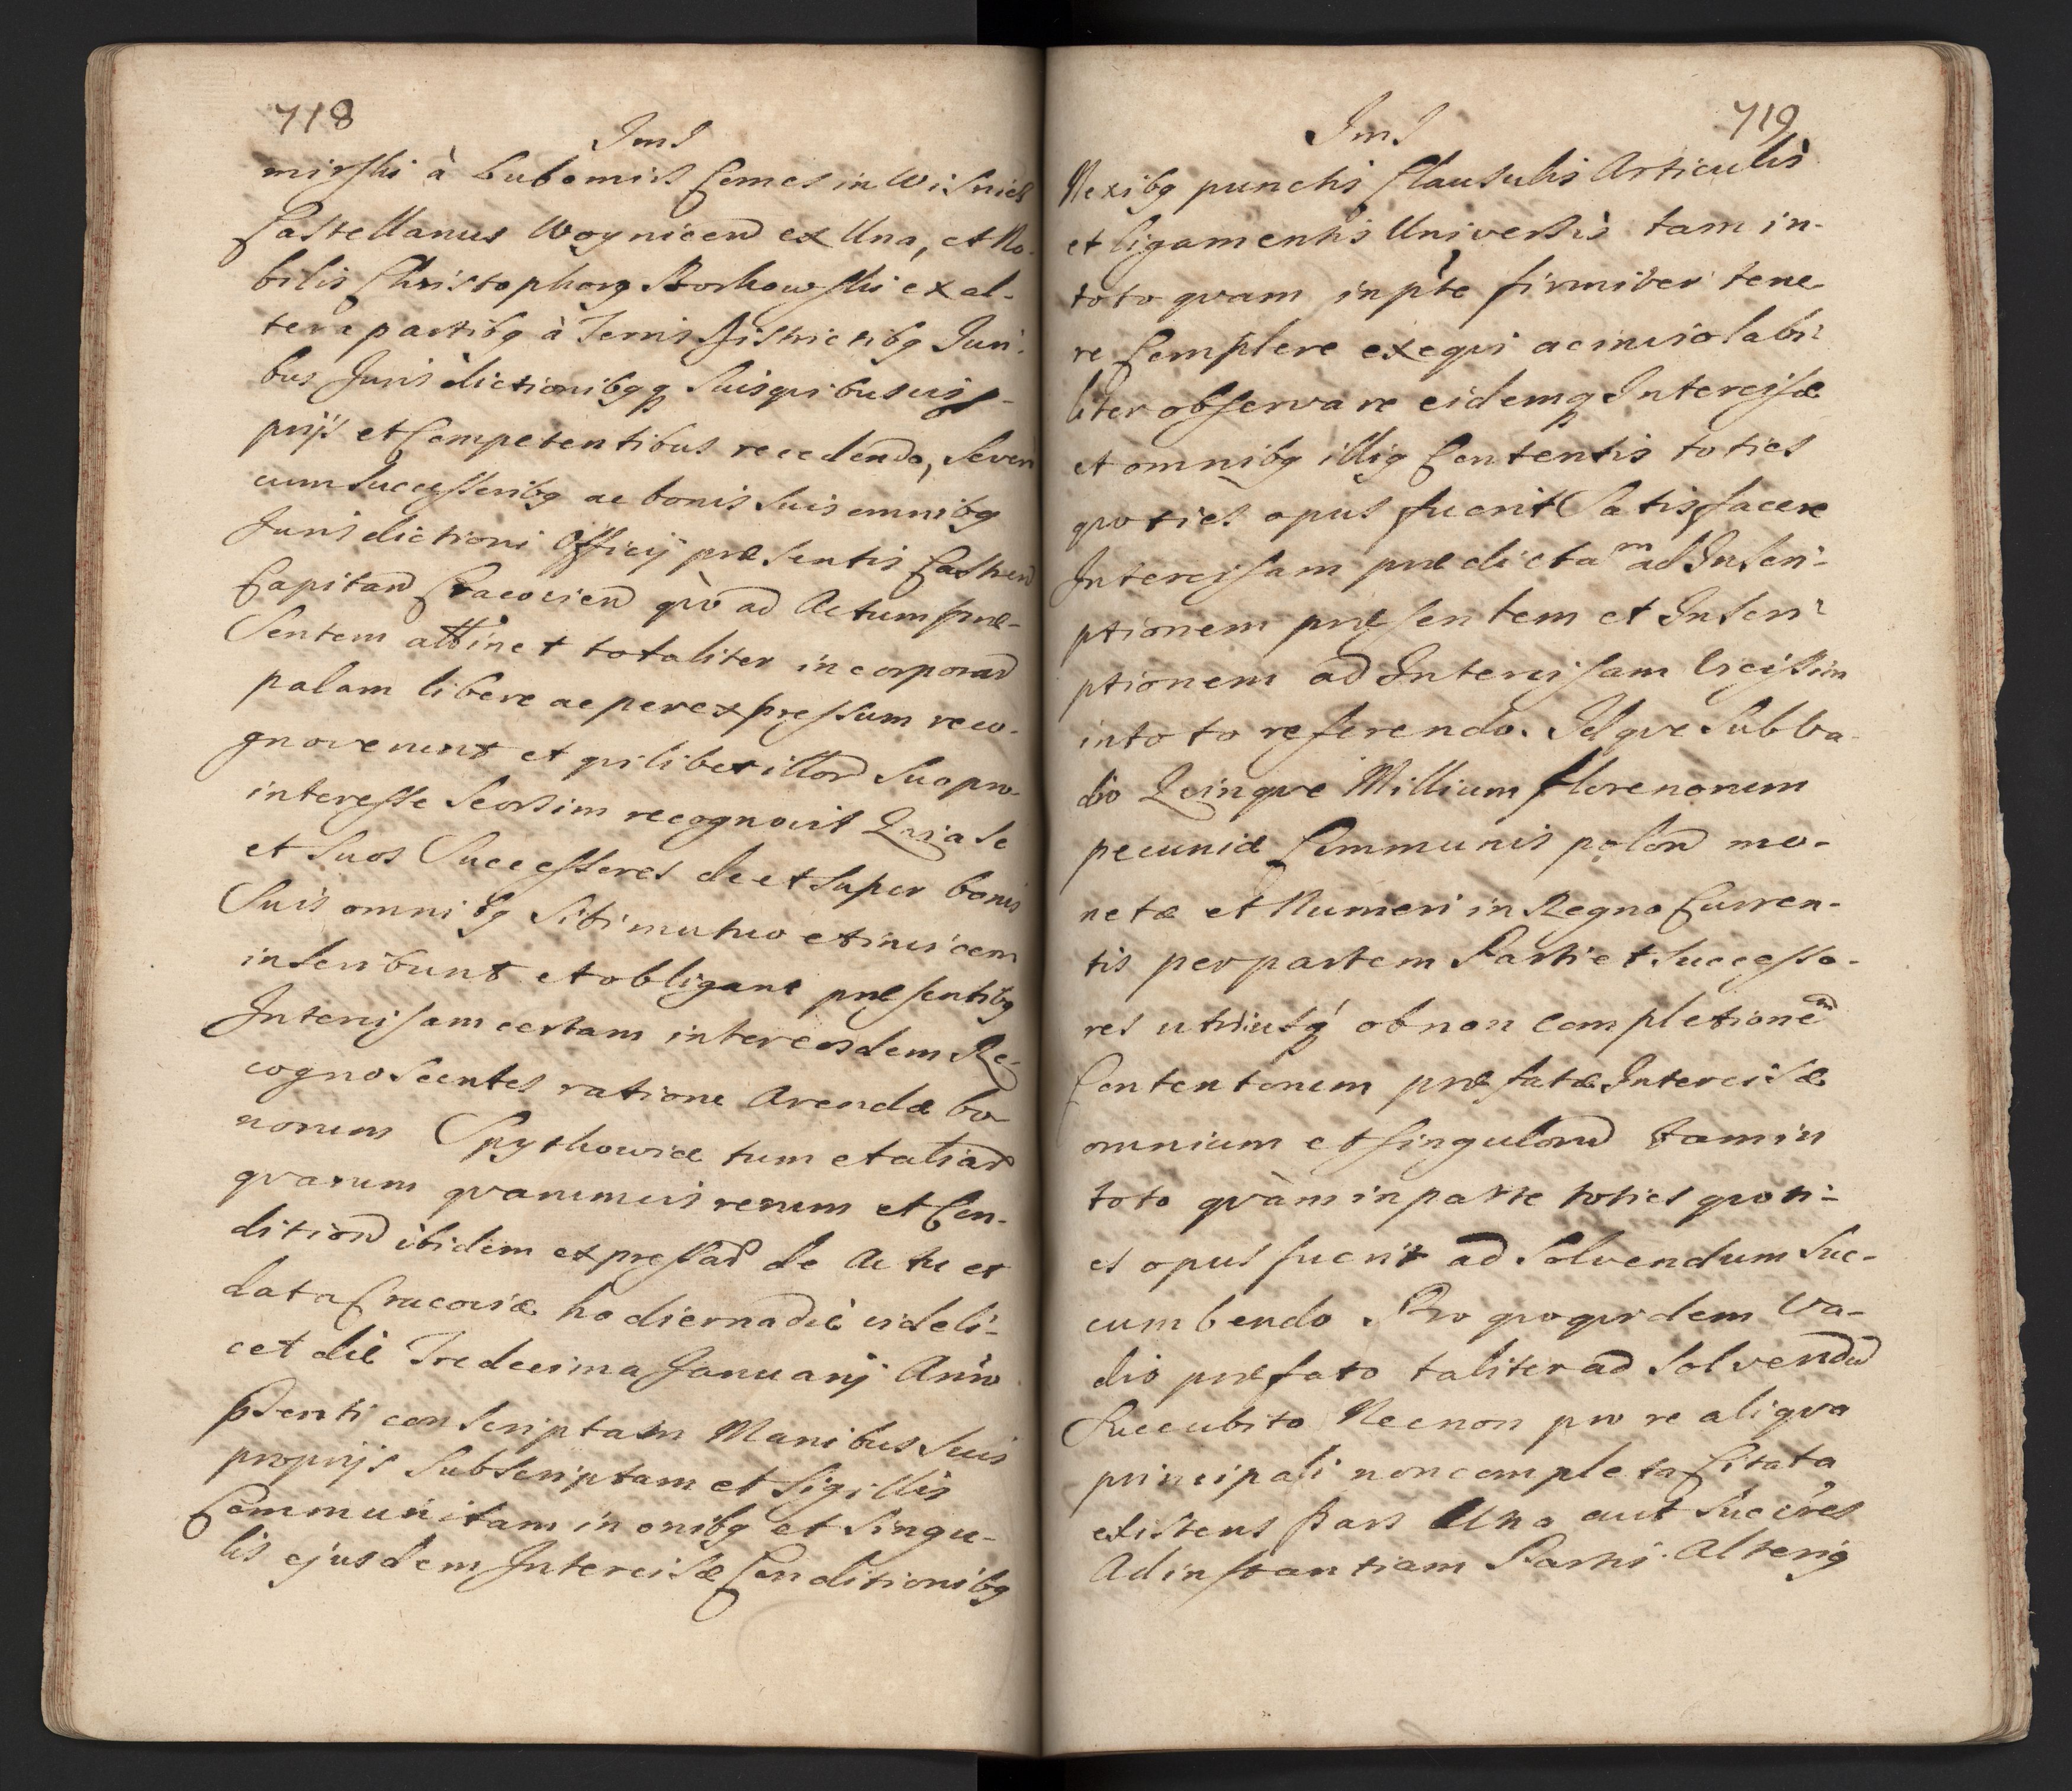 718
JmJ
mirski à Lubomirs Comes in Wisnicz
Castellanus Woynicen ex Una, et No-
bilis Christophorg Borkowski ex al-
tera partibg à Terris Districtibg Juri-
bus Jurisdictionibgq suis quibusvis p-
prijs et Competentibus recedendo, seven
cum Successoribg ac bonis suis omnibg
Jurisdictioni Officij præsentis Castren
Capitan Cracovien qvo ad Actum præ-
Sentem attinet totaliter incorporan
palam libere ac per expressum reco-
gnoverunt et quilibet illor Sua pro
interesse Seorsim recognovit Quia Se
et Suos Successores de et super bonis
Suis omnibg sibi mutuo et invicem
inscribunt et obligant præsentibg
Intercisam certam inter eosdem Re-
cognoscentes ratione Arendæ bo-
norum Spytkowice tum et aliar
qvarum qvarumvis rerum et Con-
dition ibidem expressar de Actu et
data Cracoviæ hodierna die videli-
cet die Tredecima Januarij Anno
psenti conscriptam Manibus suis
proprijs Subscriptam et Sigillis
Communitam in onibg et Singu-
lis ejusdem Intercisæ Conditionibg
719
JmJ
Nexibg punctis Clausulis Articulis
et ligamentis Universis tam in-
toto qvam in pte firmiter tene-
re Complere exeqvi ac inviolabi-
liter observare eidemq Intercisæ
et omnibg illig Contentis toties
qvoties opus fuerit Satisfacere
Intercisam prædictam ad Inscri-
ptionem præsentem et Inscri-
ptionem ad Intercisam Vicissim
in toto referendo. Idqve Sub va-
dio Qvinqve Millium florenorum
pecuniæ Communis polon mo-
netæ et Numeri in Regno Curren-
tis per partem Partis et Successo-
res utriusq ob non completionem
Contentorum præfatæ Intercisæ
omnium et singulorum tam in
toto qvàm in parte toties qvoti-
es opus fuerit ad Solvendum Suc-
cumbendo. Pro qvo qvidem Va-
dio præfato taliter ad solvendu
Succubito Necnon pro re aliqva
principali non completa Citata
existens Pars Una aut Succres
Ad instantiam Partis Alterig